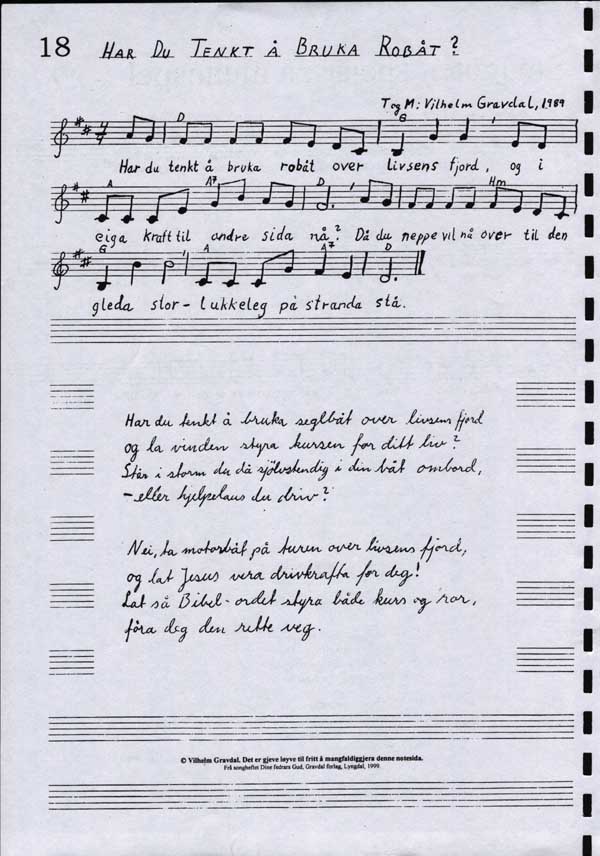 18 HAR DU TENKT Å BRUKA ROBÅT?
T og M: Vilhelm Gravdal, 1989
D G D
Har du tenkt å bruka robåt over livsens fjord, og i
A A7 D Hm
eiga kraft til andre sida nå? Då du neppe vil nå over til den
G A A7 D
gleda stor- lukkeleg på stranda stå.
Har du tenkt å bruka seglbåt over livsens fjord
og la vinden styra kursen for ditt liv?
Står i storm du då sjølvstendig i din båt ombord,
- eller hjelpelaus du driv?
Nei, ta motorbåt på turen over livsens fjord,
og lat Jesus vera drivkrafta for deg!
Lat så Bibel-ordet styra både kurs og ror,
föra deg den rette veg.
© Vilhelm Gravdal. Det er gjeve løyve til fritt å mangfaldiggjera denne notesida.
Frå songheftet Dine fedrars Gud, Gravdal forlag, Lyngdal, 1999.